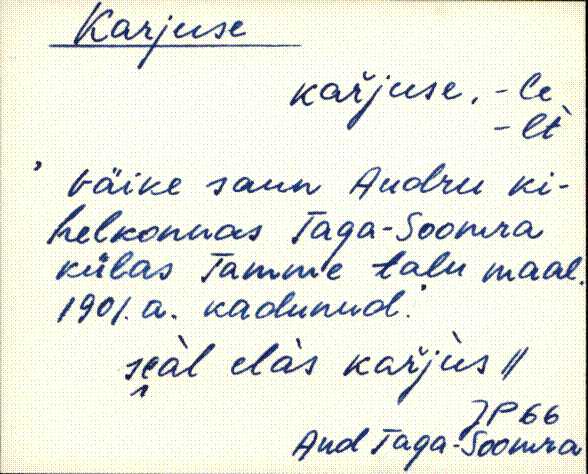 Karjuse
kaŕjuse, -le
-lt
' väike saun Audru ki-
helkonnas Taga-Soomra
külas Tamme talu maal.
1901. a. kadunud.'
seàl elàs kaŕjùs //
JP 66
Aud Taga-Soomra